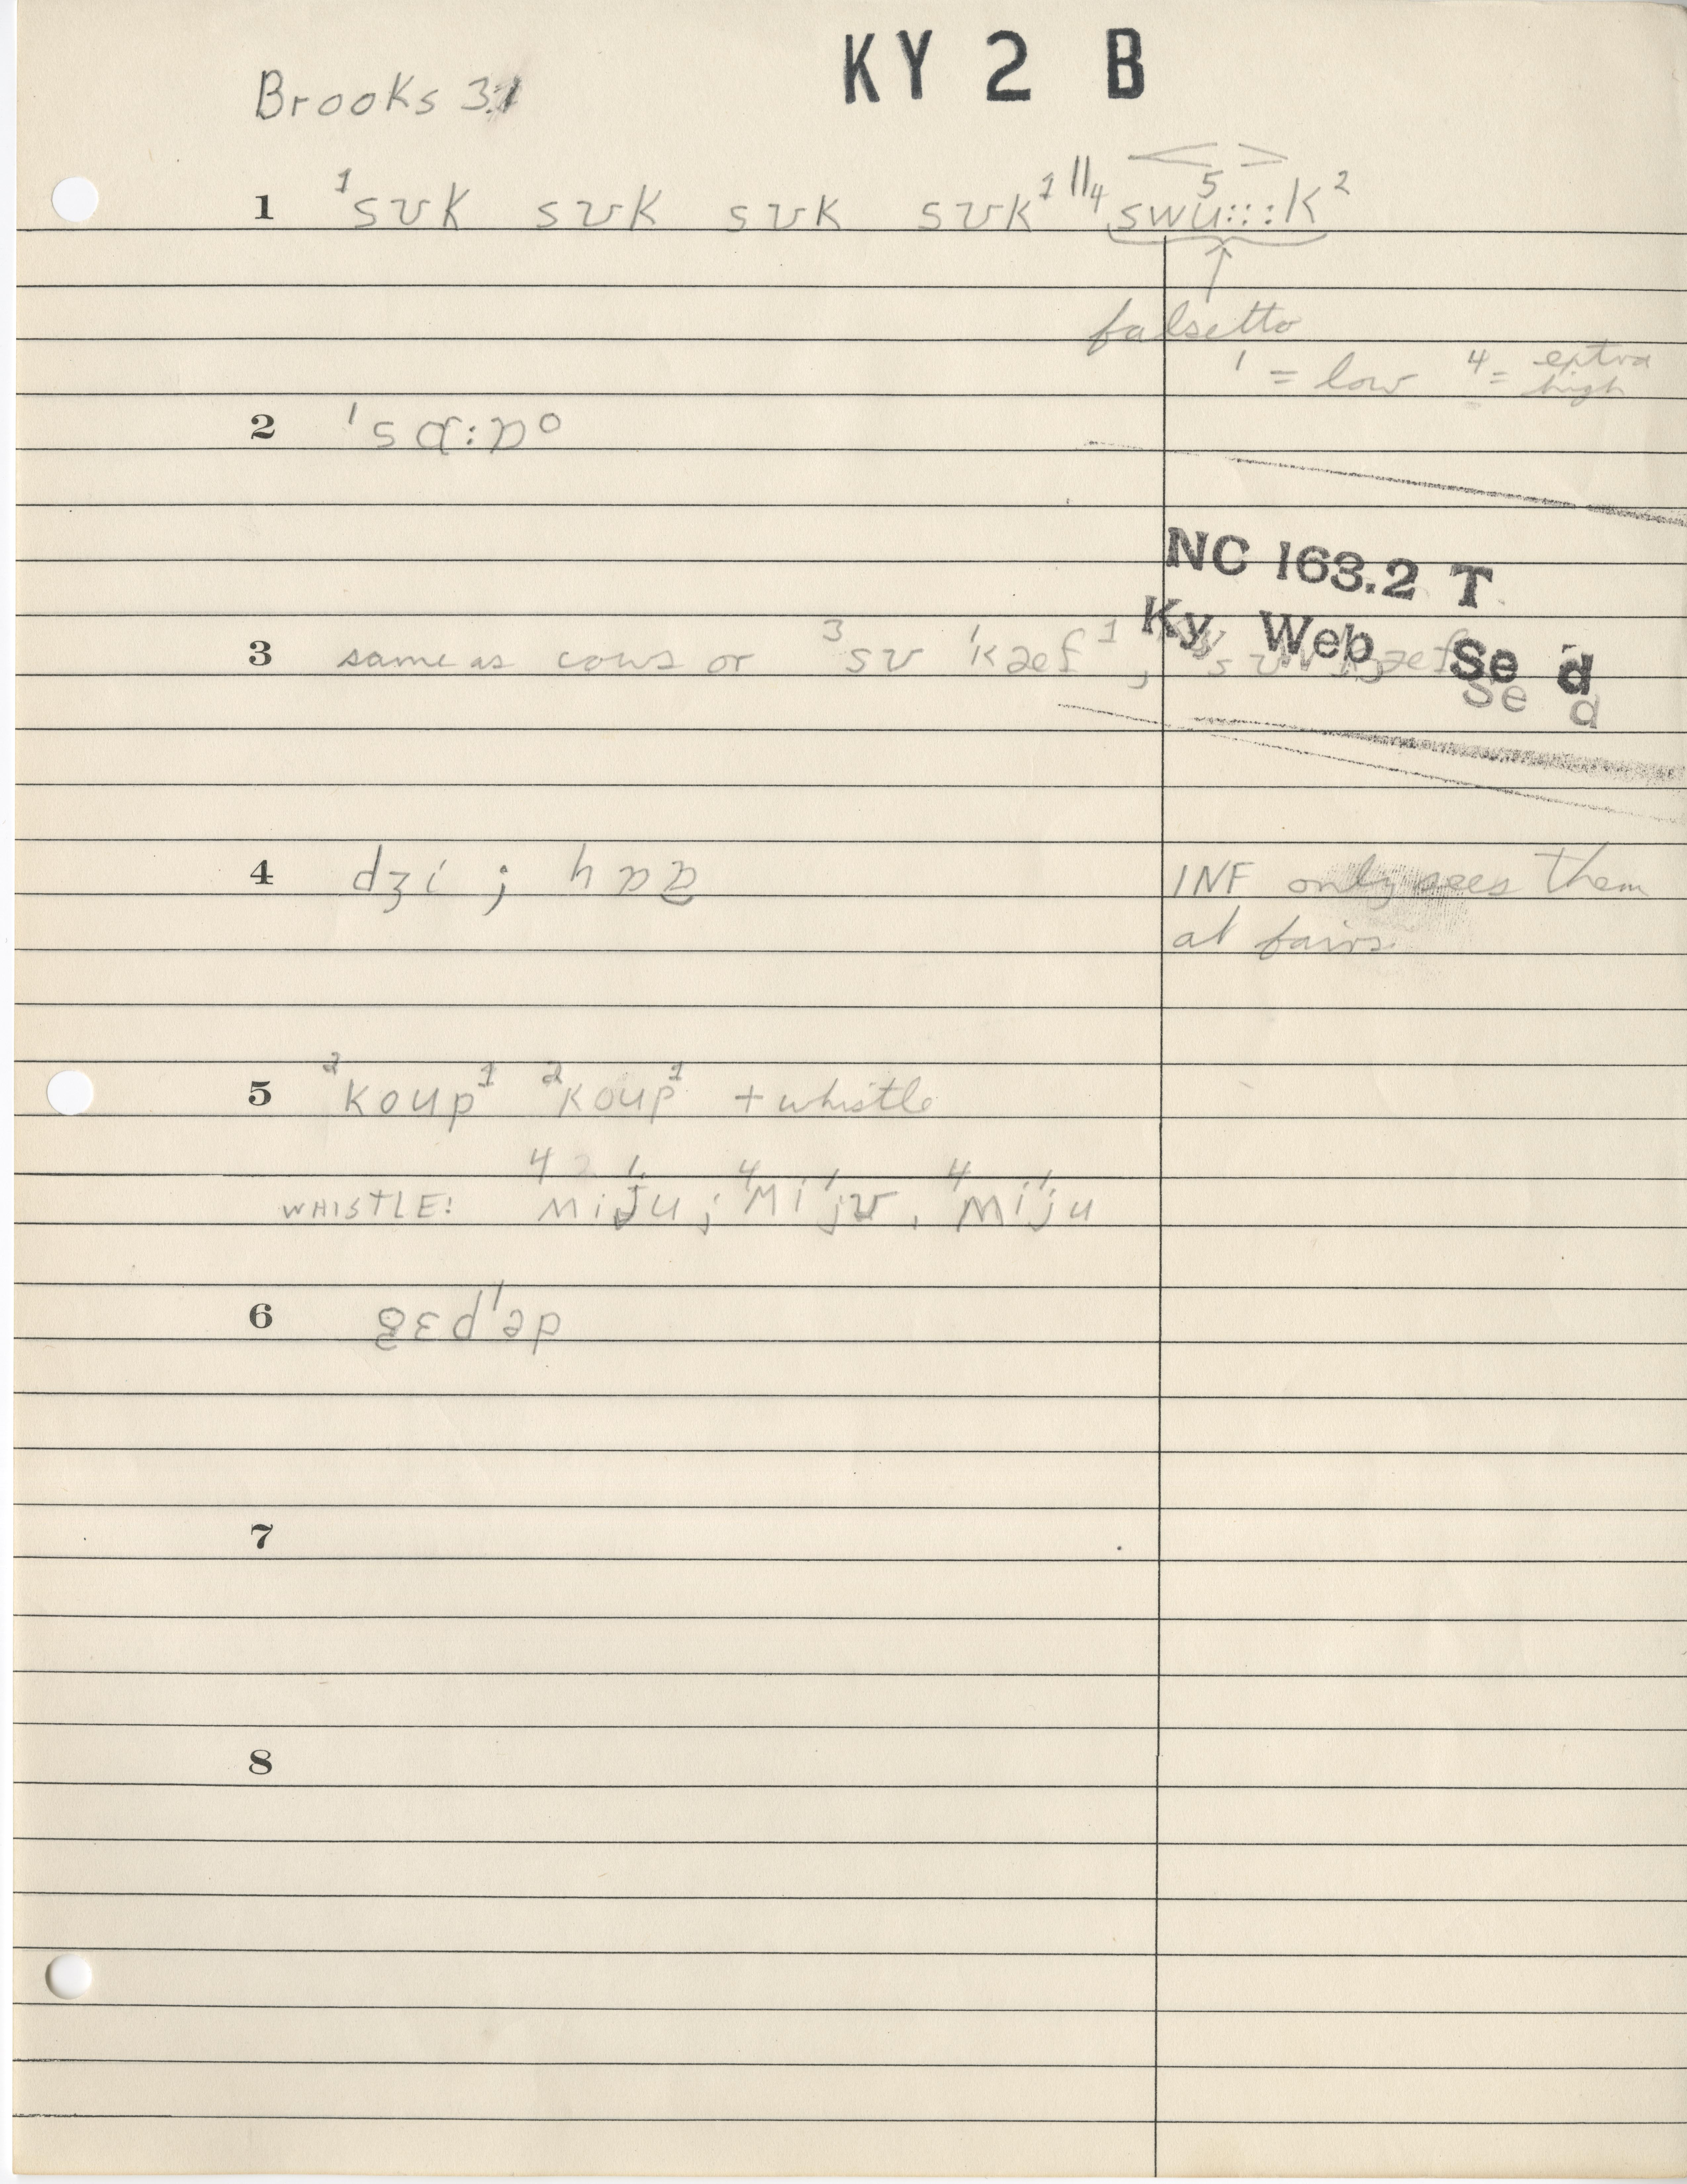 KY 2 B
Brooks 3.1
1 ¹sʊk sʊk sʊk sʊk¹ ||⁴ swu⁵:::k²
falsetto
1 = low 4 = extra high
2 ˈsɑ:ɒº
NC 163.2 T
Ky Web Se d
Se d
3 same as cows or ³sʊ ˈkæf¹,
4 dʒi ; hɒ
INF only sees them
at fairs.
5 ²koup¹ ²koup¹ + whistle
WHISTLE! ⁴mi¹ju ; ⁴mi¹jʊ , ⁴mi¹ju
6
7
8